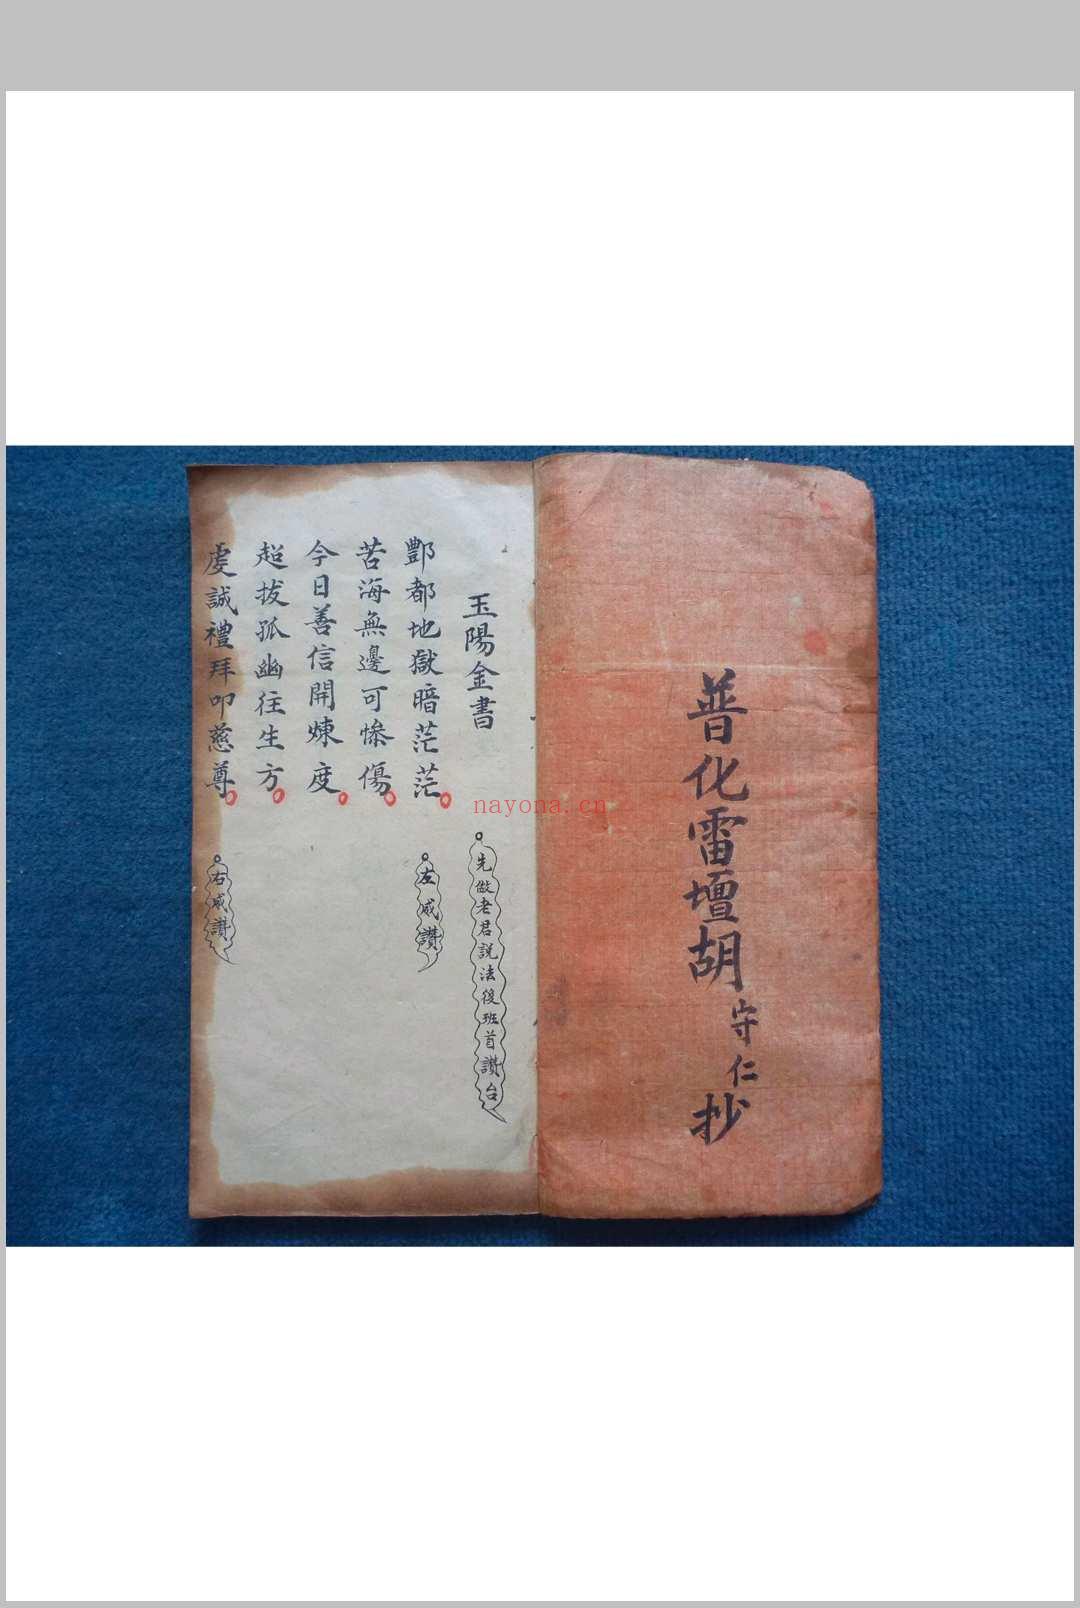 普化雷壇胡守仁抄
玉陽金書
先做老君説法後班首讚台
酆都地獄暗茫茫
左咸讚
苦海無邊可慘傷
今日善信開煉度
超拔孤幽往生方
虔誠禮拜叩慈尊
右咸讚
nayona.cn